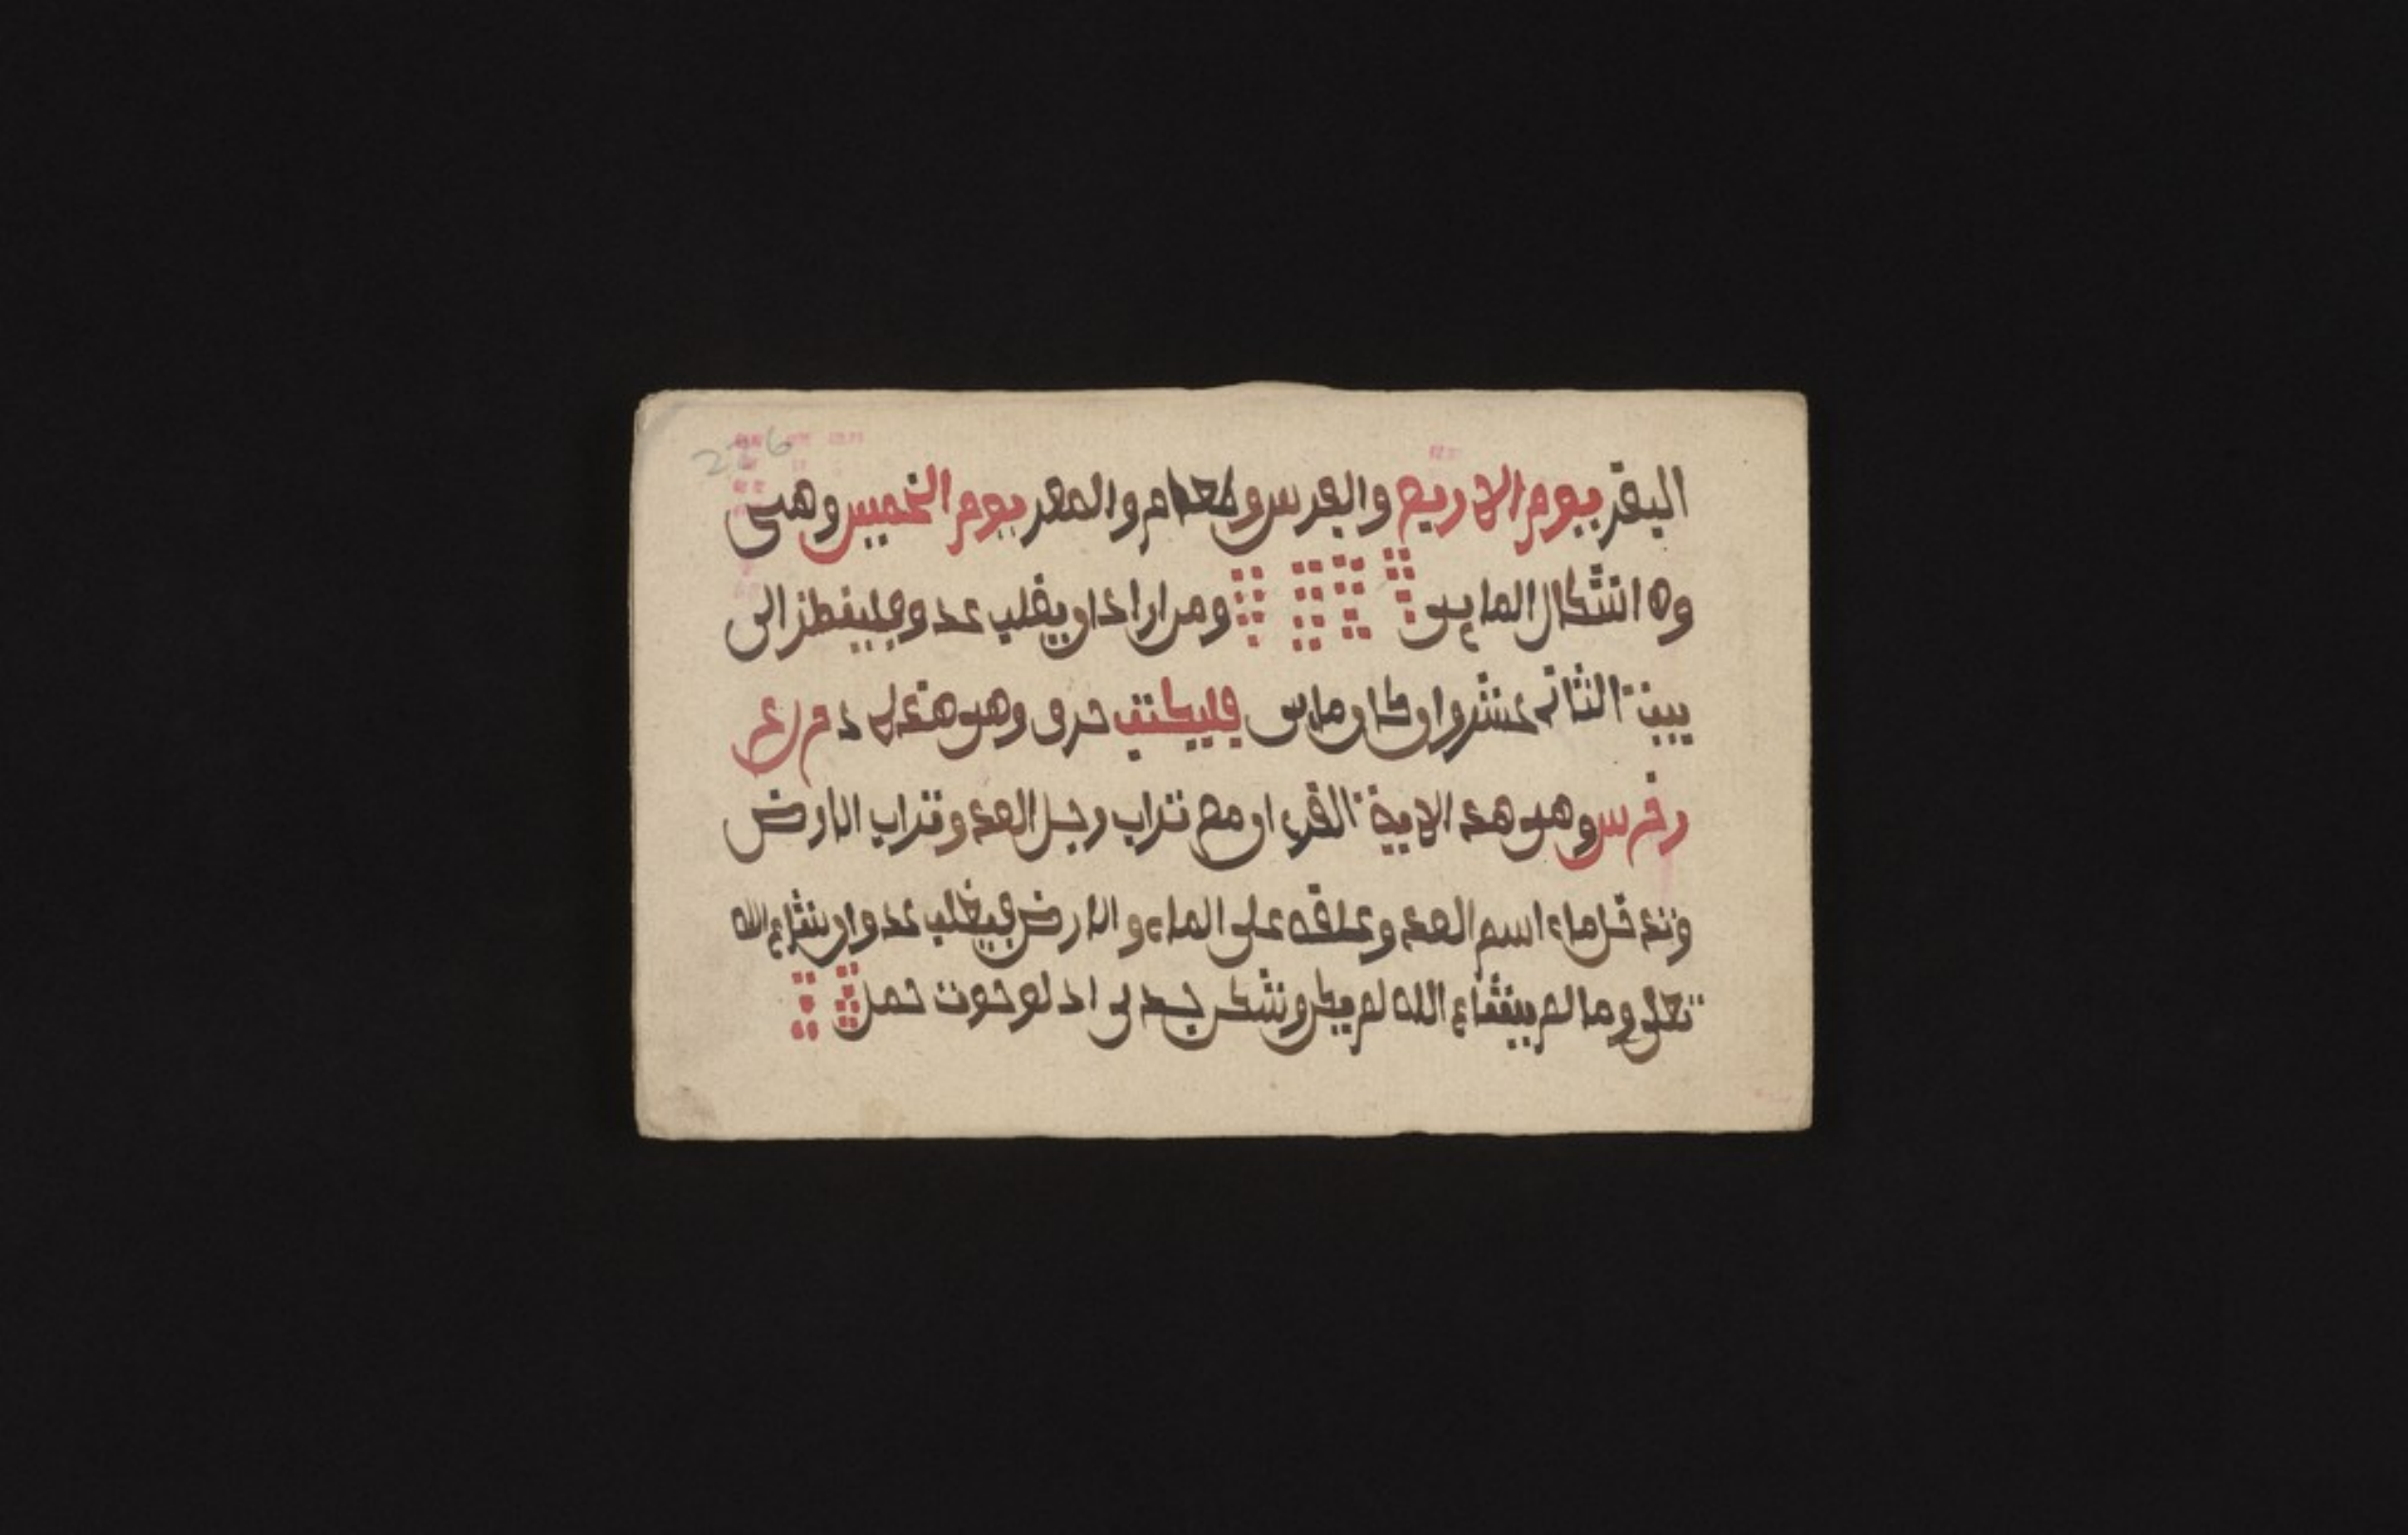 226
البقر يوم الاربع والفرس و م والمعز يوم الخميس وهى
وه اشكال المايى ومن اراد ان يغلب عدو فلينظر الى
بيت الثانى عشر وان كان ماس فليكتب حرف وهو هذه د م ر ع
ر ف س وهو هذه الاية القرءان مع تراب رجل العد وتراب الارض
اسم العد وعلقه على الماء والارض فيغلب عدو ان يشاء الله
تعلى وما لم يشاء الله لم يكن وشكر جدى اد لو حوت حمل